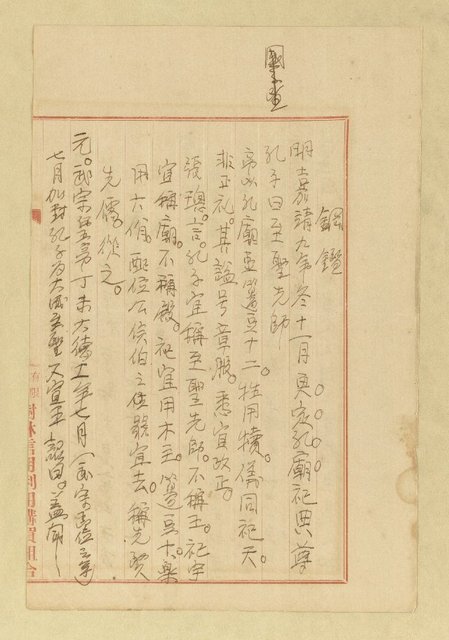 綱鑑
明嘉靖九年冬十一月更定孔廟祀典尊
孔子曰至聖先師
帝以孔廟籩豆十二。牲用犢。儀同祀天。
非正礼。其謚号章服。悉宜改正。
張璁言。孔子宜稱至聖先師。不稱王。祀宇
宜稱廟。不稱殿。祀宜用木主。籩豆十。樂
用六佾。配位公侯伯之位號宜去。稱先賢
先儒。從之。
元。武宗 丁未大德十一年七月
七月加封孔子為大成至聖文宣王 詔曰。蓋聞
有限
樹林信用利用購買組合